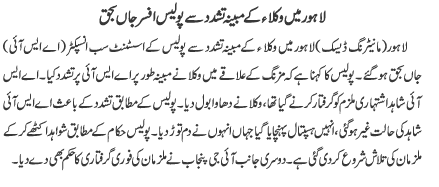 لاہور میں وکلاء کے مبینہ تشدد سے پولیس افسر جاں بحق
لاہور (مانیٹرنگ ڈیسک) لاہور میں وکلاء کے مبینہ تشدد سے پولیس کے اسسٹنٹ سب انسپکٹر (اے ایس آئی)
جاں بحق ہو گئے۔ پولیس کا کہنا ہے کہ مزنگ کے علاقے میں وکلا نے مبینہ طور پر اے ایس آئی پر تشدد کیا۔ اے ایس
آئی شاہد اشتہاری ملزم کو گرفتار کرنے گیا تھا، وکلا نے دھاوا بول دیا۔ پولیس کے مطابق تشدد کے باعث اے ایس آئی
شاہد کی حالت غیر ہو گئی، انہیں ہسپتال پہنچایا گیا جہاں انہوں نے دم توڑ دیا۔ پولیس حکام کے مطابق شواہد اکٹھے کر کے
ملزمان کی تلاش شروع کر دی گئی ہے۔ دوسری جانب آئی جی پنجاب نے ملزمان کی فوری گرفتاری کا حکم بھی دے دیا۔